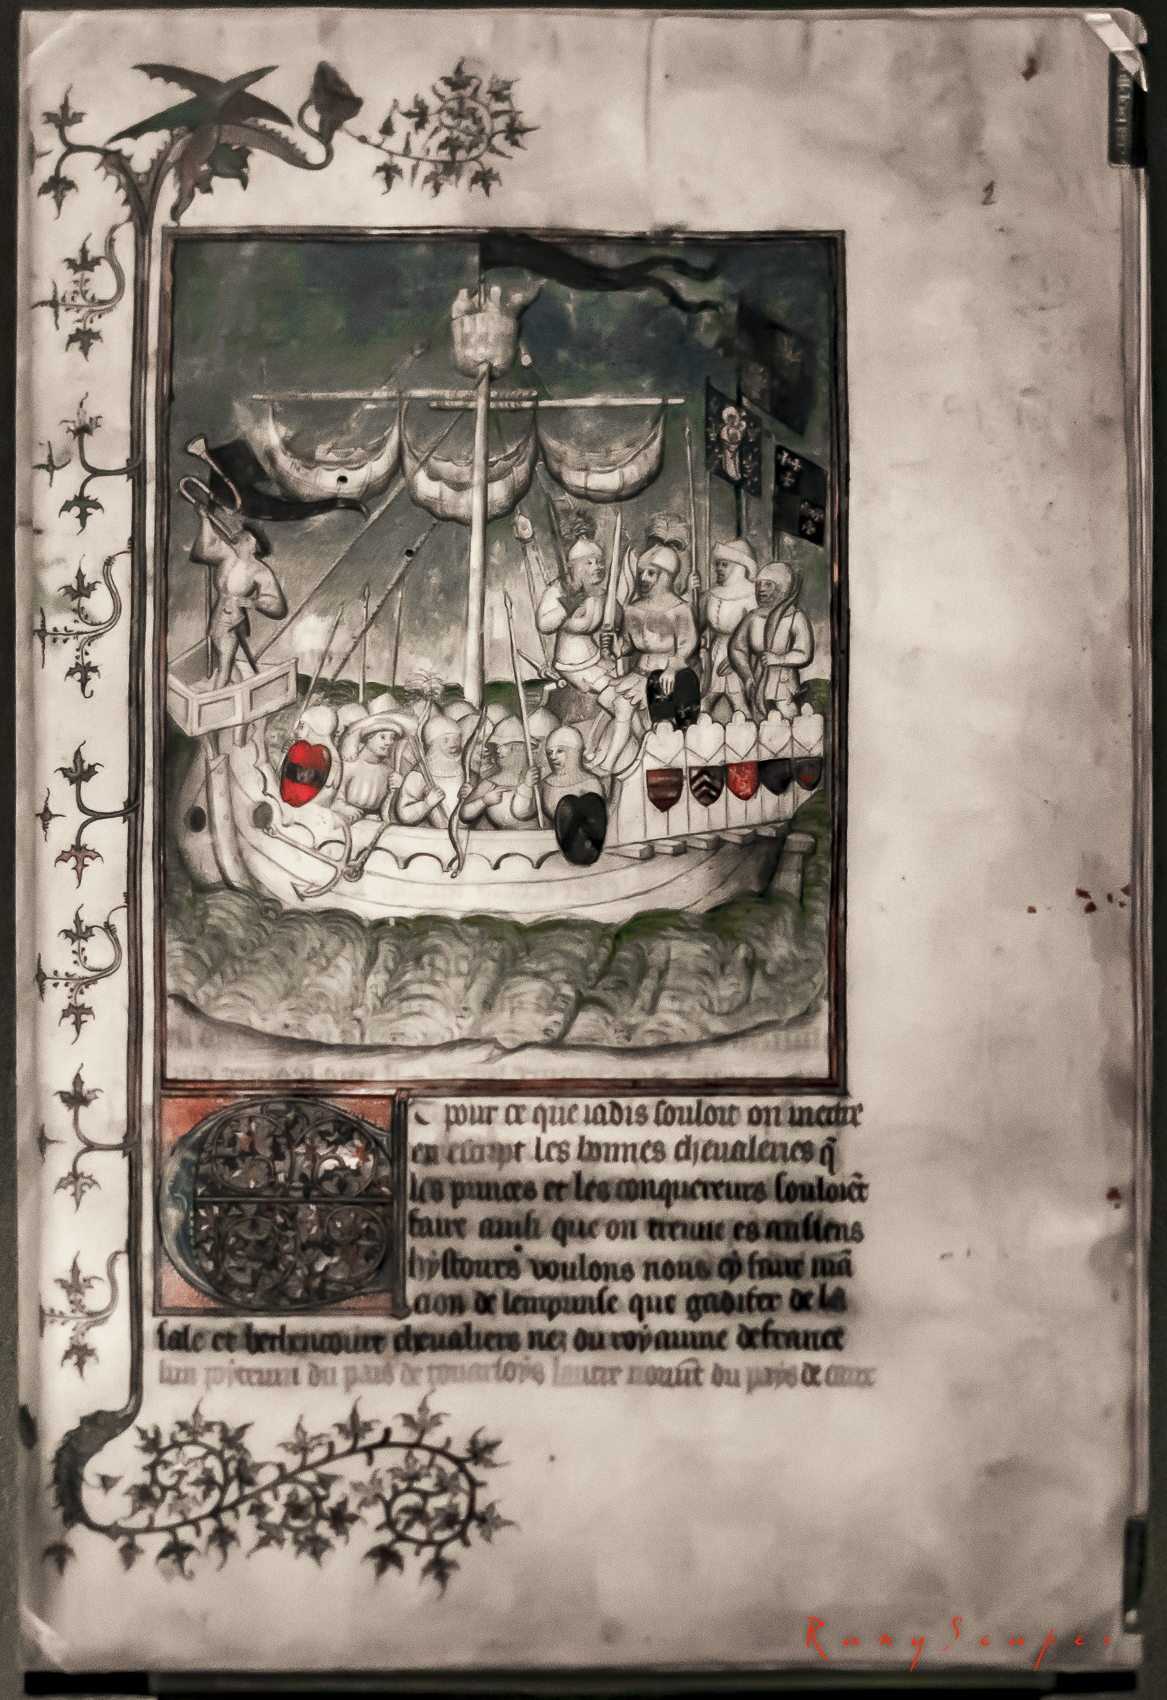 2
E pour ce que iadis souloit on mectre
en escript les bonnes cheualeries q̃
les princes et les conquereurs souloiẽt
faire ainsi que on treuue es ansiens
hystoures voulons nous cy faire mã
cion de lempunse que gadifer de la
sale et berhencourt cheualiers nez du royaume de france
lun du pais de lautre du pays de caux
RanyScapes